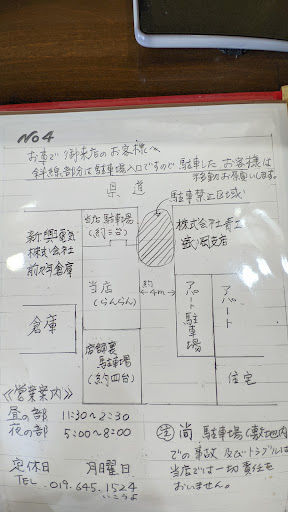 No 4
お車で御来店のお客様へ
斜線部分は駐車場入口ですので駐車したお客様は
移動お願いします。
県道
駐車禁止区域
当店駐車場
(約三台)
新興電気
株式会社
倉庫
株式会社
盛岡支店
当店
(らんらん)
約
4m
アパート駐車場
アパート
倉庫
店舗裏
駐車場
(約四台)
住宅
≪営業案内≫
昼の部 11:30~2:30
夜の部 5:00~8:00
定休日 月曜日
TEL 019.645.1524
いこうよ
注 尚 駐車場(敷地内)
での事故及びトラブルは
当店では一切責任を
おいません。